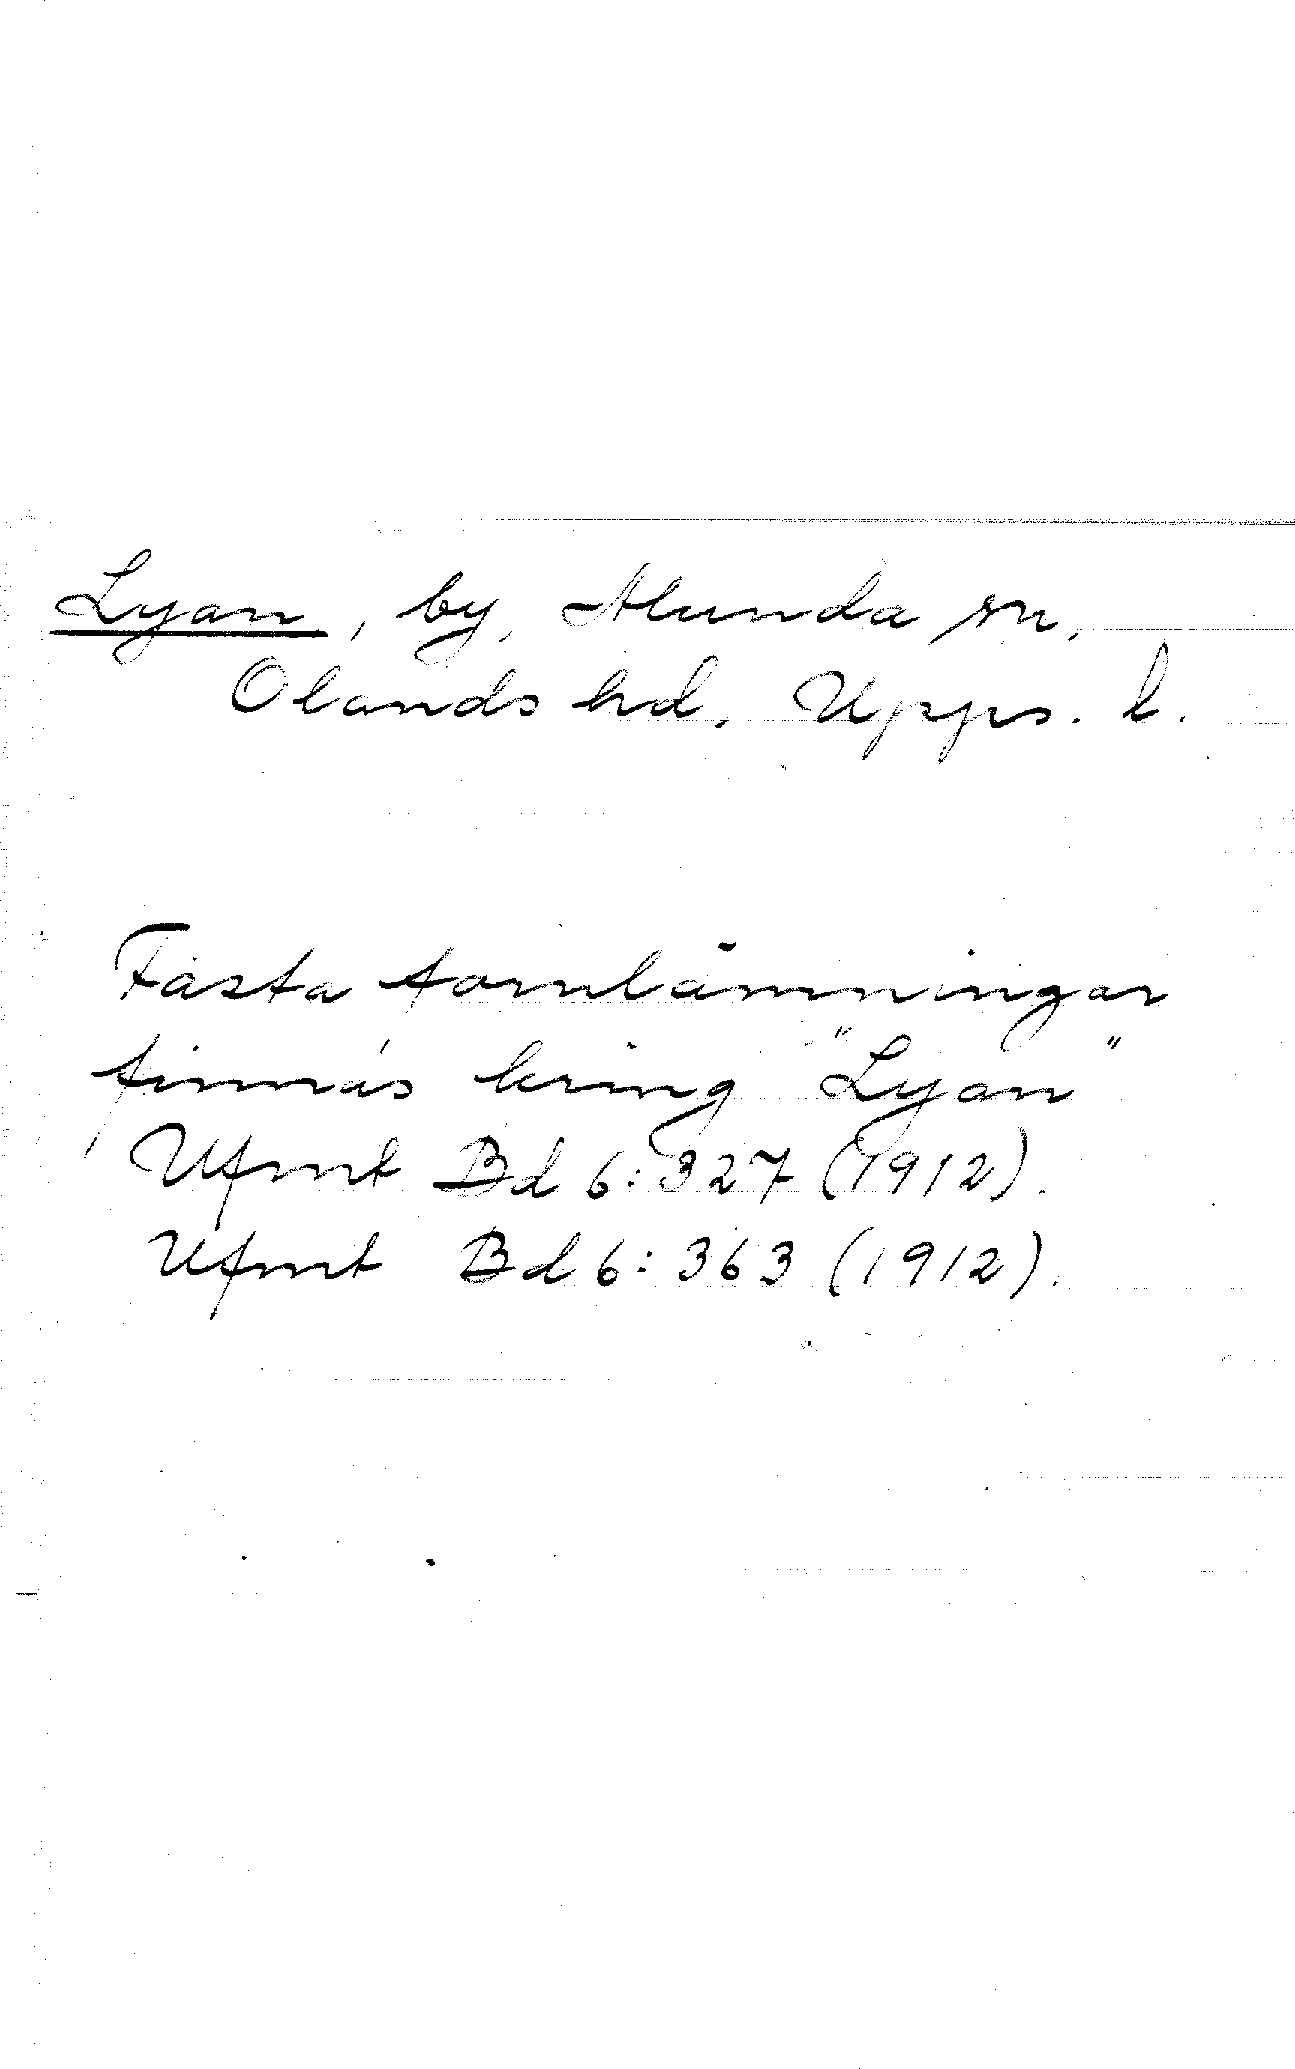 Lyan, by, Alunda sn,
Olands hd. Upps. l.
Fasta fornlämningar
finnas kring "Lyan"
Ufmt Bd 6:327 (1912).
Ufmt Bd 6:363 (1912).